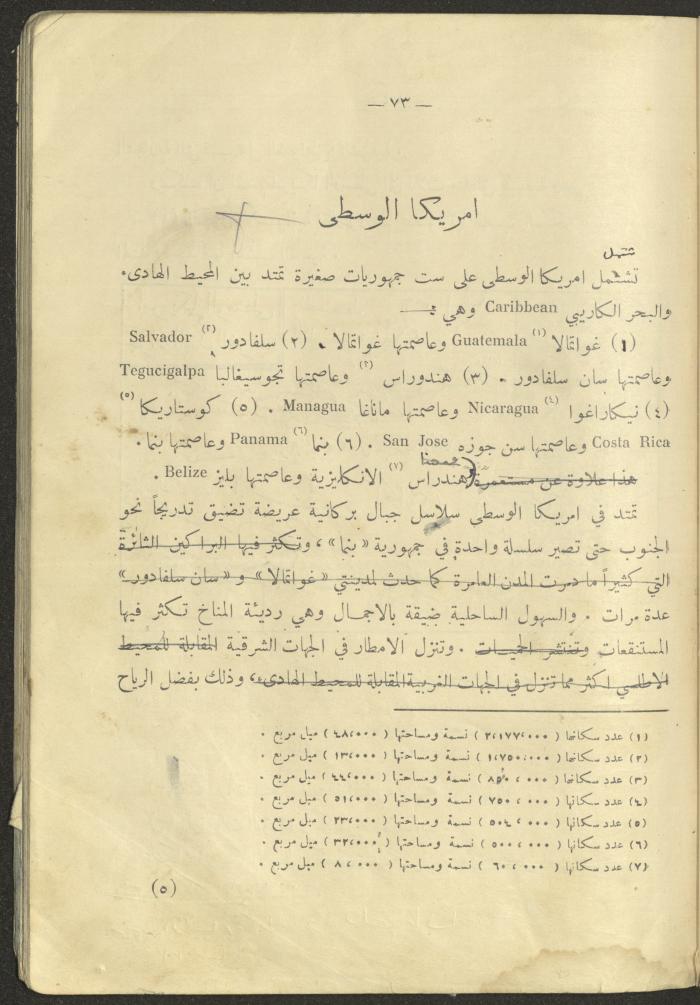 — ٧٣ —
امريكا الوسطى
شتمل
تشتمل امريكا الوسطى على ست جمهوريات صغيرة تمتد بين المحيط الهادىء
والبحر الكاريبي Caribbean وهي :—
(١) غواتمالا (١) Guatemala وعاصمتها غواتمالا . (٢) سلفادور (٢) Salvador
وعاصمتها سان سلفادور . (٣) هندوراس (٣) وعاصمتها تجوسيغالبا Tegucigalpa
(٤) نيكاراغوا (٤) Nicaragua وعاصمتها ماناغا Managua . (٥) كوستاريكا (٥)
Costa Rica وعاصمتها سن جوزه San Jose . (٦) بنما (٦) Panama وعاصمتها بنما .
هذا علاوة عن مستعمرة هندراس (٧) الانكليزية وعاصمتها بليز Belize .
تمتد في امريكا الوسطى سلاسل جبال بركانية عريضة تضيق تدريجاً نحو
الجنوب حتى تصير سلسلة واحدة في جمهورية «بنما» ، وتكثر فيها البراكين الثائرة
التي كثيراً ما دمرت المدن العامرة كما حدث لمدينتي «غواتمالا» و «سان سلفادور»
عدة مرات . والسهول الساحلية ضيقة بالاجمال وهي رديئة المناخ تكثر فيها
المستنقعات وتنتشر الحميات . وتنزل الامطار في الجهات الشرقية المقابلة للمحيط
الاطلسي اكثر مما تنزل في الجهات الغربية المقابلة للمحيط الهادىء، وذلك بفضل الرياح
(١) عدد سكانها (٢،١٧٧،٠٠٠) نسمة ومساحتها (٤٨،٠٠٠) ميل مربع .
(٢) عدد سكانها (١،٧٥٠،٠٠٠) نسمة ومساحتها (١٣،٠٠٠) ميل مربع .
(٣) عدد سكانها (٨٥٠،٠٠٠) نسمة ومساحتها (٤٤،٠٠٠) ميل مربع .
(٤) عدد سكانها (٧٥٠،٠٠٠) نسمة ومساحتها (٥١،٠٠٠) ميل مربع .
(٥) عدد سكانها (٥٠٤،٠٠٠) نسمة ومساحتها (٢٣،٠٠٠) ميل مربع .
(٦) عدد سكانها (٥٠٠،٠٠٠) نسمة ومساحتها (٣٢،٠٠٠) ميل مربع .
(٧) عدد سكانها (٦٠،٠٠٠) نسمة ومساحتها (٨،٠٠٠) ميل مربع .
(٥)